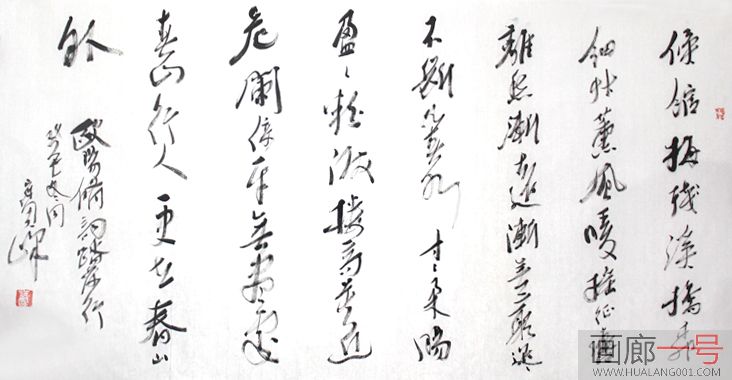 候館梅殘溪橋柳
細草薰風暖搖征轡
離愁漸遠漸無窮迢々
不斷如春水寸々柔腸
盈々粉淚樓高莫近
危闌倚平蕪盡處是
春山行人更在春山
外
歐陽修詞踏莎行
癸巳冬月
画廊一号
WWW.HUALANG001.COM